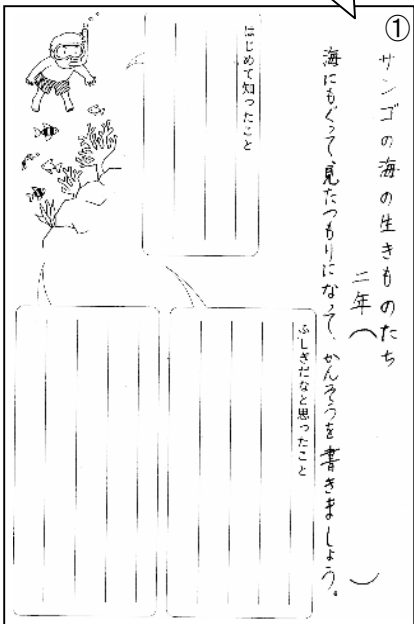 ①
サンゴの海の生きものたち
二年（　　）
海にもぐって、見たつもりになって、かんそうを書きましょう。
はじめて知ったこと
ふしぎだなと思ったこと